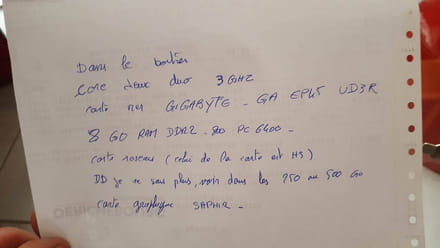 Dans le boitier
Core deux duo 3 GHZ
carte mer GIGABYTE - GA EP45 UD3R
8 GO RAM DDR2 - 800 PC 6400 -
carte reseau (celui de la carte est HS)
DD je ne sais plus, mais dans les 250 au 500 Go
carte graphique SAPHIR -